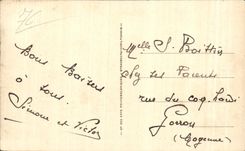 76
Bons Baisers
à tous
Simone et Victor
Melle S. Boittin
chez ses Parents
rue du Coq Hardi
Gorron
(Mayenne)